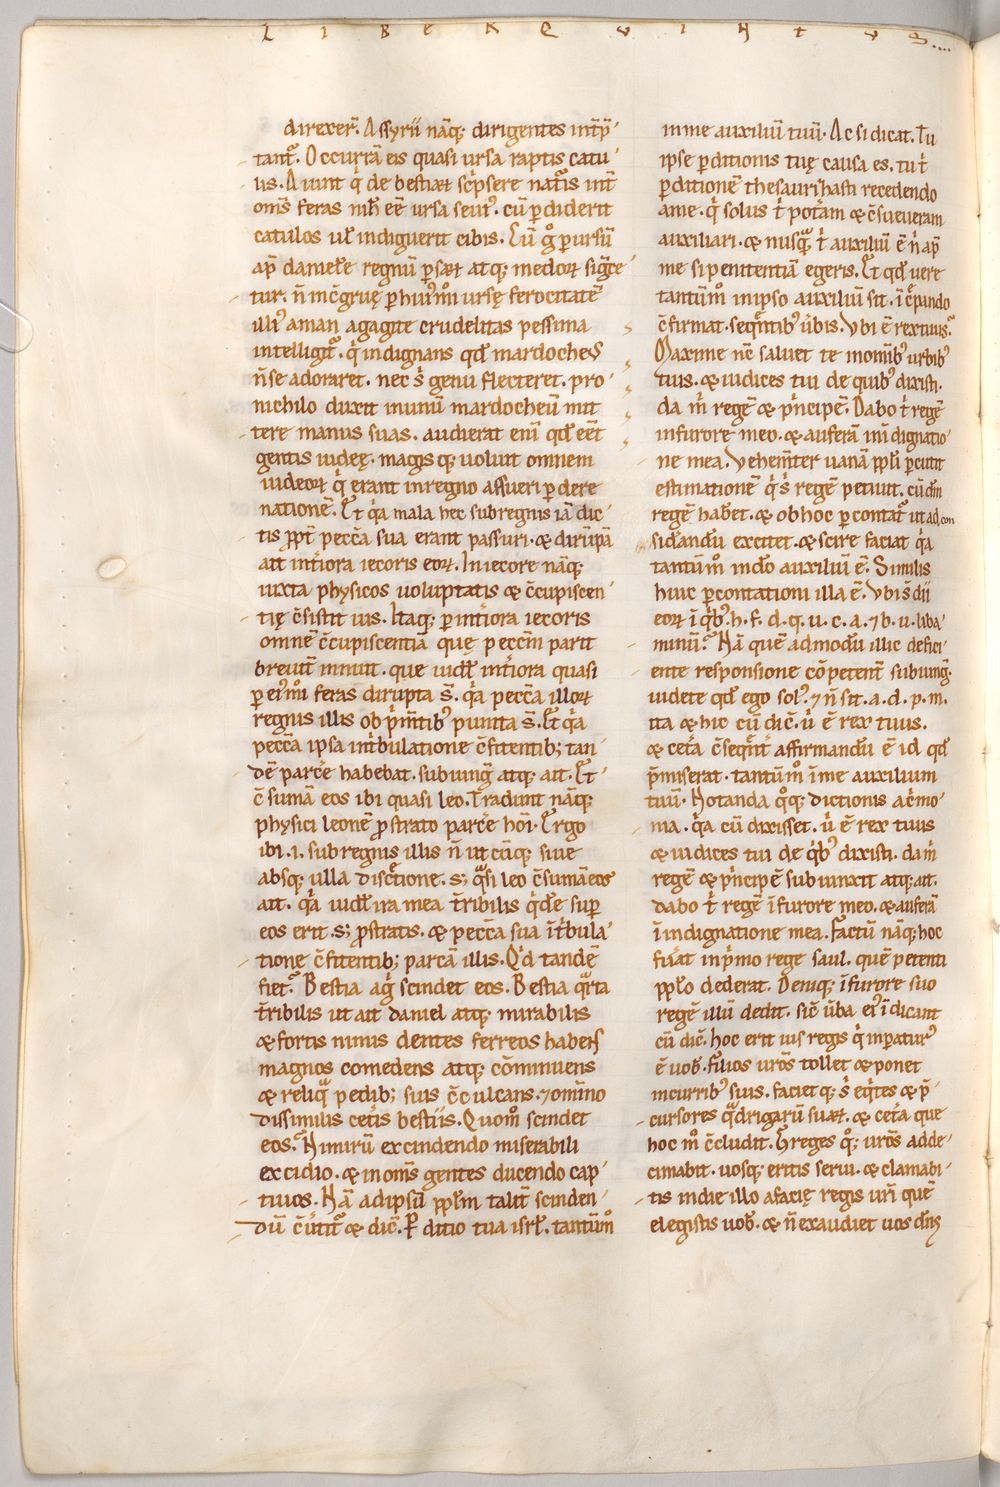 LIBER QVINTVS....
direxer̄. Assyrii nāq; dirigentes int̄p̄
tant᷑. Occurrā eis quasi ursa raptis catu
lis. Aiunt q̇ de bestiaꝝ sc̄psere nat᷑is int̄
om̄s feras nih̄ eē ursa seuiꝰ. cū pdiderit
catulos uł indiguerit cibis. Cū g̊ p ursū
ap̄ daniele regnū psaꝝ atq; medoꝝ sig̅re
tur. n̄ inc̄gruę p huiꝰmͦi ursę ferocitatē
illiꝰ aman agagite crudelitas pessima
intelligit᷑. q̇ indignans qđ mardocheꝰ
n̄ se adoraret. nec s̓ genu flecteret. pro
nichilo duxit in unū mardocheū mit
tere manus suas. audierat eni qđ eēt
gentis iudeę. magisq; uoluit omnem
iudeoꝝ q̇ erant in regno assueri pdere
nationē. Et q̓a mala hec sub regnis iā dic
tis ꝓpt̄ pecc̄a sua erant passuri. & dirūpā
ait int̓iora iecoris eoꝝ. In iecore nāq;
iuxta physicos uoluptatis & c̄cupiscen
tię c̄sistit uis. Itaq; p int̓iora iecoris
omnē c̄cupiscentiā quę pecc̄m parit
breuit̄ innuit. que iudł int̓iora quasi
p eiꝰmͦi feras dirupta s̄. q̓a pecc̄a illoꝝ
regnis illis ob p̓m̄tibꝰ punita s̄. Et q̓a
pecc̄a ipsa in t̓bulatione c̄fitentib; tan
dē parc̓e habebat. subiung̅ atq; ait. Et
c̄sumā eos ibi quasi leo. Tradunt nāq;
physici leonē ꝓstrato parc̓e hōi. Ergo
ibi .i. sub regnis illis n̄ utcūq; siue
absq; ulla disc̓tione. s; q̓si leo c̄sumā eos
ait. q̓a iudł ira mea t̄ribilis q̓de sup
eos erit. s; ꝓstratis. & pecc̄a sua ī t̓bula
tione c̄fitentib; parcā illis. Qđ tandē
fiet᷑. Bestia ag̓ scindet eos. Bestia q̓rta
t̄ribilis ut ait daniel atq; mirabilis
& fortis nimis dentes ferreos habens
magnos comedens atq; cōminuens
& reliq̓ pedib; suis c̄culcans. ⁊ om̄ino
dissimilis cet̓is bestiis. Quomͦ scindet
eos. Nimirū excindendo miserabili
excidio. & in om̄s gentes ducendo cap
tiuos. Nā ad ipsū ppłm talit̄ scinden
dū c̄u̓tit᷑ & dic̄. Pditio tua isrł. tantūmͦ
in me auxiliū tuū. Ac si dicat. Tu
ipse pditionis tuę causa es. tu t̓
pditionē thesaurizasti recedendo
a me. q̇ solus t̓ pot̓am & c̄sueueram
auxiliari. & nusq̓ t̓ auxiliū ē n̓ ap̄
me si penitentiā egeris. Et qđ uere
tantūmͦ in ipso auxiliū sit. ic̄pando
c̄firmat. seq̄ntibꝰ ūbis. Vbi ē rex tuus.
Maxime nc̄ saluet te in om̄ibꝰ urbibꝰ
tuis. & iudices tui de quibꝰ dixisti.
da m̓ regē & p̓ncipē. Dabo t̓ regē
in furore meo. & auferā in indignatio
ne mea. Vehem̄ter uanā ppłi pcutit
estimationē q̇ s̓ regē petiuit. cū dm̄
regē hab̓et. & ob hoc pcontat᷑ ut ad con
sid̓andū excitet. & scire faciat q̓a
tantūmͦ in dō auxiliū ē. Similis
huic pcontationi illa ē. Vbi s̄ dii
eoꝝ ī q̓bꝰ. h. f. d. q. u. c. a. ⁊ b. u. liba
minū. Nā quēadmodū illic defici
ente responsione cōpetent̄ subiung̅.
uidete qđ ego solꝰ. ⁊ n̄ sit. a. d. p. m.
ita & hic cū dic̄. u̓ ē rex tuus.
& cet̓a c̄seq̄nt̄ affirmandū ē id qđ
p̄miserat. tantūmͦ ī me auxilium
tuū. Notanda q̊q; dictionis ac̓mo
nia. q̓a cū dixisset. u̓ ē rex tuus
& iudices tui de q̓bꝰ dixisti. da m̓
regē & p̓ncipē subiunxit atq; ait.
dabo t̓ regē ī furore meo. & auferā
ī indignatione mea. Factū nāq; hoc
fu̓at in p̓mo rege saul. quē petenti
ppło dederat. Deniq; ī furore suo
regē illū dedit. sic̄ ūba eiꝰ īdicant
cū dic̄. hoc erit ius regis q̇ inpaturꝰ
ē uob̓. Filios ur̄os tollet & ponet
in curribꝰ suis. facietq; s̓ eq̓tes & p̄
cursores q̓drigarū suaꝝ. & cet̓a que
hoc mͦ c̄cludit. Greges q̊; ur̄os adde
cimabit. uosq; eritis serui. & clamabi
tis in die illo a facię regis ur̄i quē
elegistis uob̓. & n̄ exaudiet uos dn̄s